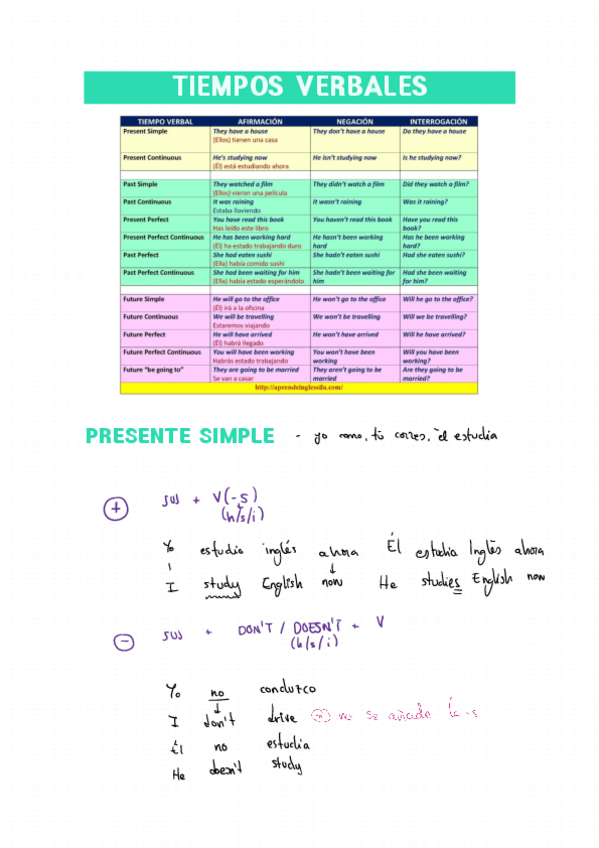 TIEMPOS VERBALES
TIEMPO VERBAL AFIRMACIÓN NEGACIÓN INTERROGACIÓN
Present Simple They have a house They don't have a house Do they have a house
(Ellos) tienen una casa
Present Continuous He's studying now He isn't studying now Is he studying now?
(Él) está estudiando ahora
Past Simple They watched a film They didn't watch a film Did they watch a film?
(Ellos) vieron una película
Past Continuous It was raining It wasn't raining Was it raining?
Estaba lloviendo
Present Perfect You have read this book You haven't read this book Have you read this
Has leído este libro book?
Present Perfect Continuous He has been working hard He hasn't been working Has he been working
(Él) ha estado trabajando duro hard hard?
Past Perfect She had eaten sushi She hadn't eaten sushi Had she eaten sushi?
(Ella) había comido sushi
Past Perfect Continuous She had been waiting for him She hadn't been waiting for Had she been waiting
(Ella) había estado esperándolo him for him?
Future Simple He will go to the office He won't go to the office Will he go to the office?
(Él) irá a la oficina
Future Continuous We will be travelling We won't be travelling Will we be travelling?
Estaremos viajando
Future Perfect He will have arrived He won't have arrived Will he have arrived?
(Él) habrá llegado
Future Perfect Continuous You will have been working You won't have been Will you have been
Habrás estado trabajando working working?
Future "be going to" They are going to be married They aren't going to be Are they going to be
Se van a casar married married?
http://aprendeinglesila.com/
PRESENTE SIMPLE - yo como, tú corres, él estudia
+ SUJ + V(-s)
(h/s/i)
Yo estudio inglés ahora Él estudia Inglés ahora
I study English now He studies English now
- SUJ + DON'T / DOESN'T + V
(h/s/i)
Yo no conduzco
I don't drive no se añade la -s
Él no estudia
He doesn't study